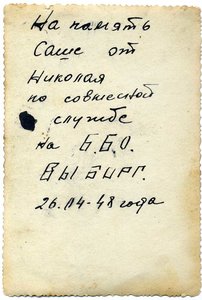 На память
Саше от
Николая
по совместной
службе
на Б.Б.О.
Выборг.
26.04-48 года